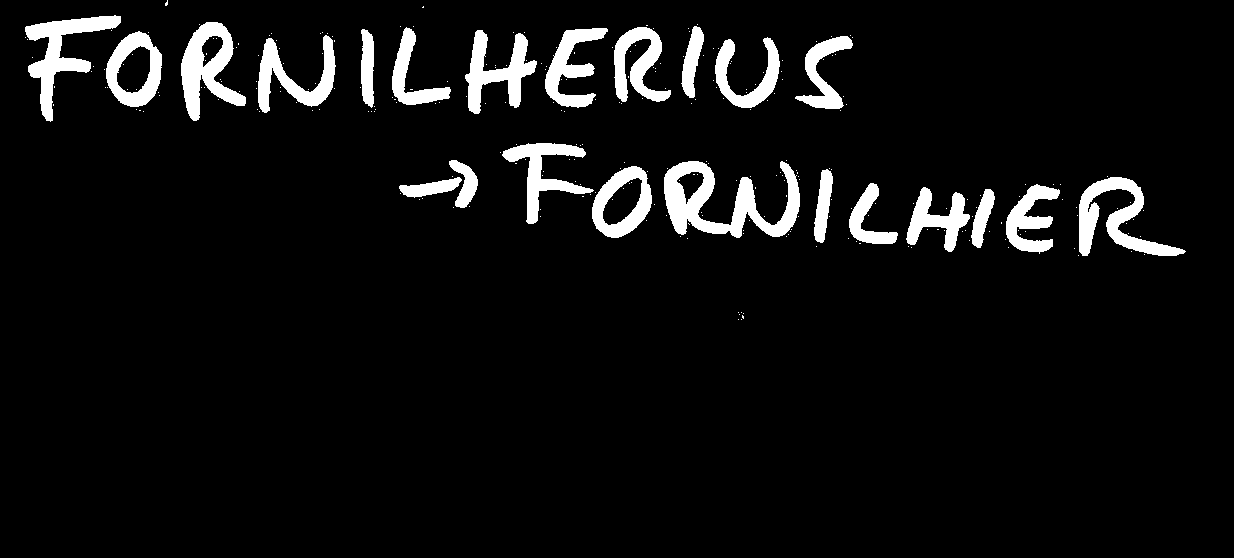 FORNILHERIUS
→ FORNILHIER